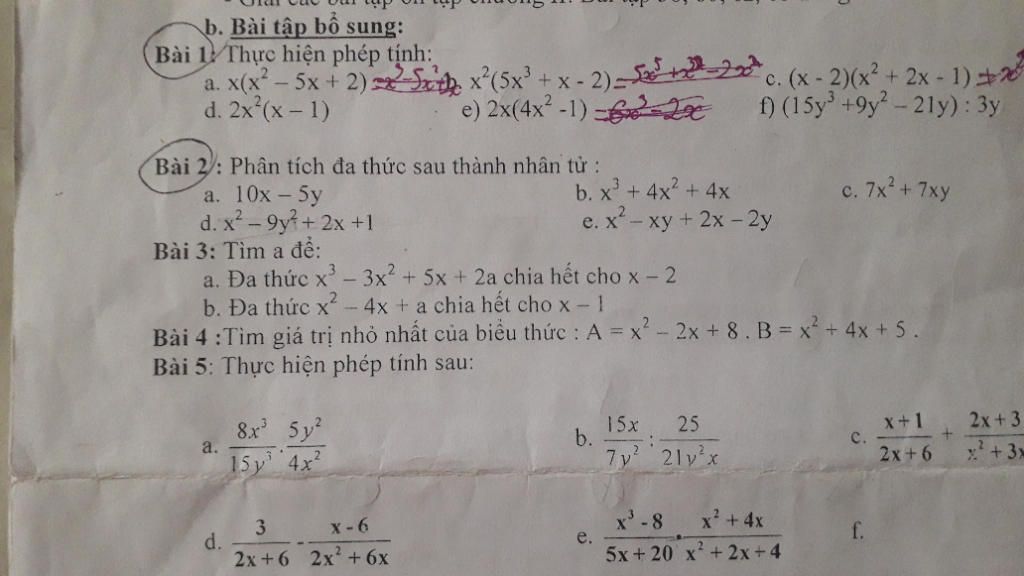 b. Bài tập bổ sung:
Bài 1: Thực hiện phép tính:
a. x(x² – 5x + 2) b. x²(5x³ + x - 2) = 5x⁵ + x³ – 2x² c. (x - 2)(x² + 2x - 1)
d. 2x²(x – 1) e) 2x(4x² -1) = 6x³ – 2x f) (15y³ +9y² – 21y) : 3y
Bài 2 : Phân tích đa thức sau thành nhân tử :
a. 10x – 5y b. x³ + 4x² + 4x c. 7x² + 7xy
d. x² – 9y² + 2x +1 e. x² – xy + 2x – 2y
Bài 3: Tìm a để:
a. Đa thức x³ – 3x² + 5x + 2a chia hết cho x – 2
b. Đa thức x² – 4x + a chia hết cho x – 1
Bài 4 :Tìm giá trị nhỏ nhất của biểu thức : A = x² – 2x + 8 . B = x² + 4x + 5 .
Bài 5: Thực hiện phép tính sau:
a. 8x³/15y³ . 5y²/4x² b. 15x/7y² : 25/21y²x c. x+1/2x+6 + 2x+3/x²+3x
d. 3/2x+6 - x-6/2x²+6x e. x³-8/5x+20 . x²+4x/x²+2x+4 f.